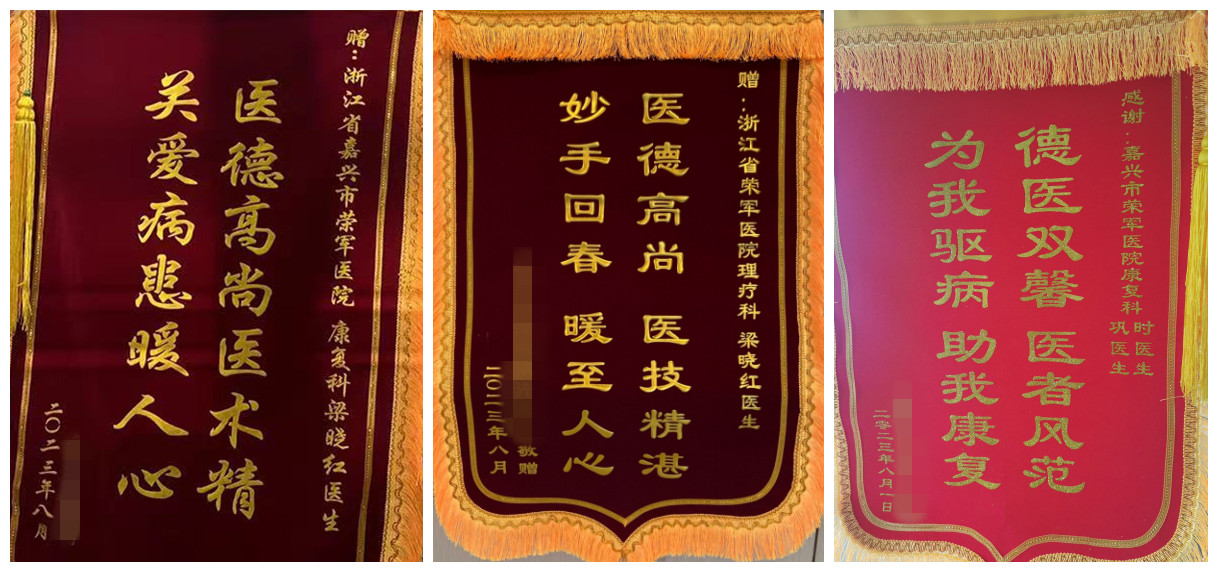 赠：浙江省嘉兴市荣军医院 康复科梁晓红医生
医德高尚医术精
关爱病患暖人心
二〇二三年八月
赠：浙江省荣军医院理疗科 梁晓红医生
医德高尚 医技精湛
妙手回春 暖至人心
敬赠
二〇二三年八月
感谢：嘉兴市荣军医院康复科
时医生
巩医生
德医双馨 医者风范
为我驱病 助我康复
二零二三年八月一日